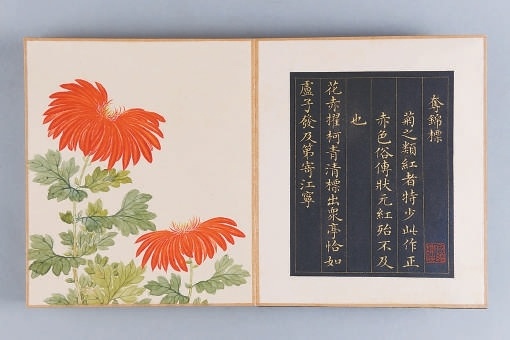 奪錦標
菊之類紅者特少此作正
赤色俗傳狀元紅殆不及
也
花赤擢柯青清標出眾亭恰如
盧子發及第寄江寧